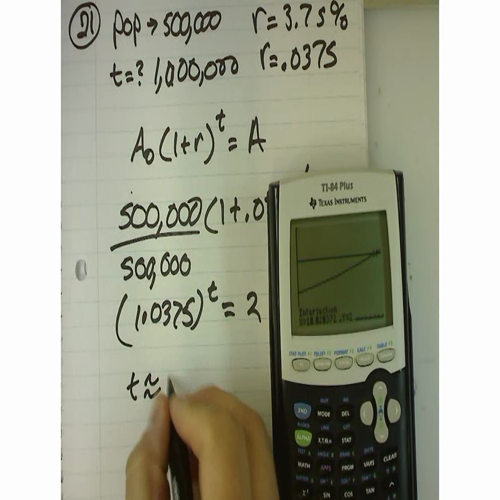 21 pop → 500,000 r = 3.75%
t = ? 1,000,000 r = .0375
A₀(1+r)ᵗ = A
500,000(1+.0
500,000
(1.0375)ᵗ = 2
t ≈
TI-84 Plus
TEXAS INSTRUMENTS
Intersection
STAT PLOT F1 TBLSET F2 FORMAT F3 CALC F4 TABLE F5
2ND MODE DEL
ALPHA X,T,θ,n STAT
MATH APPS PRGM VARS CLEAR
SIN COS TAN